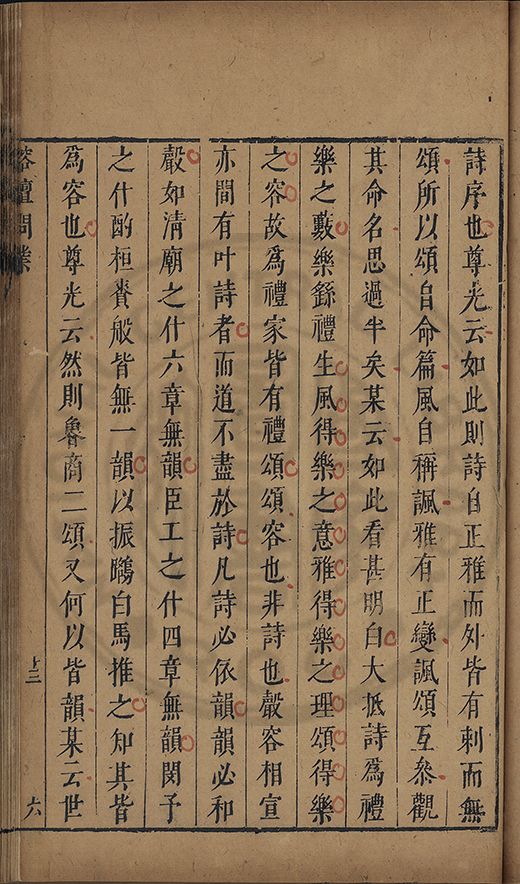 詩序也尊光云如此則詩自正雅而外皆有刺而無
頌所以頌自命篇風自稱諷雅有正變諷頌互叅觀
其命名思過半矣某云如此看甚明白大抵詩爲禮
樂之數樂繇禮生風得樂之意雅得樂之理頌得樂
之容故爲禮家皆有禮頌頌容也非詩也聲容相宣
亦間有叶詩者而道不盡於詩凡詩必依韻韻必和
聲如清廟之什六章無韻臣工之什四章無韻閔予
之什酌桓賚般皆無一韻以振鷺白馬推之知其皆
爲容也尊光云然則魯商二頌又何以皆韻某云世
榕壇問業
十三
六